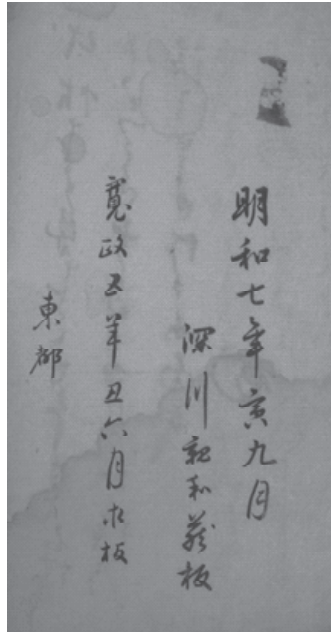 明和七年寅九月
深川親和蔵板
寛政五年丑六月求板
東都